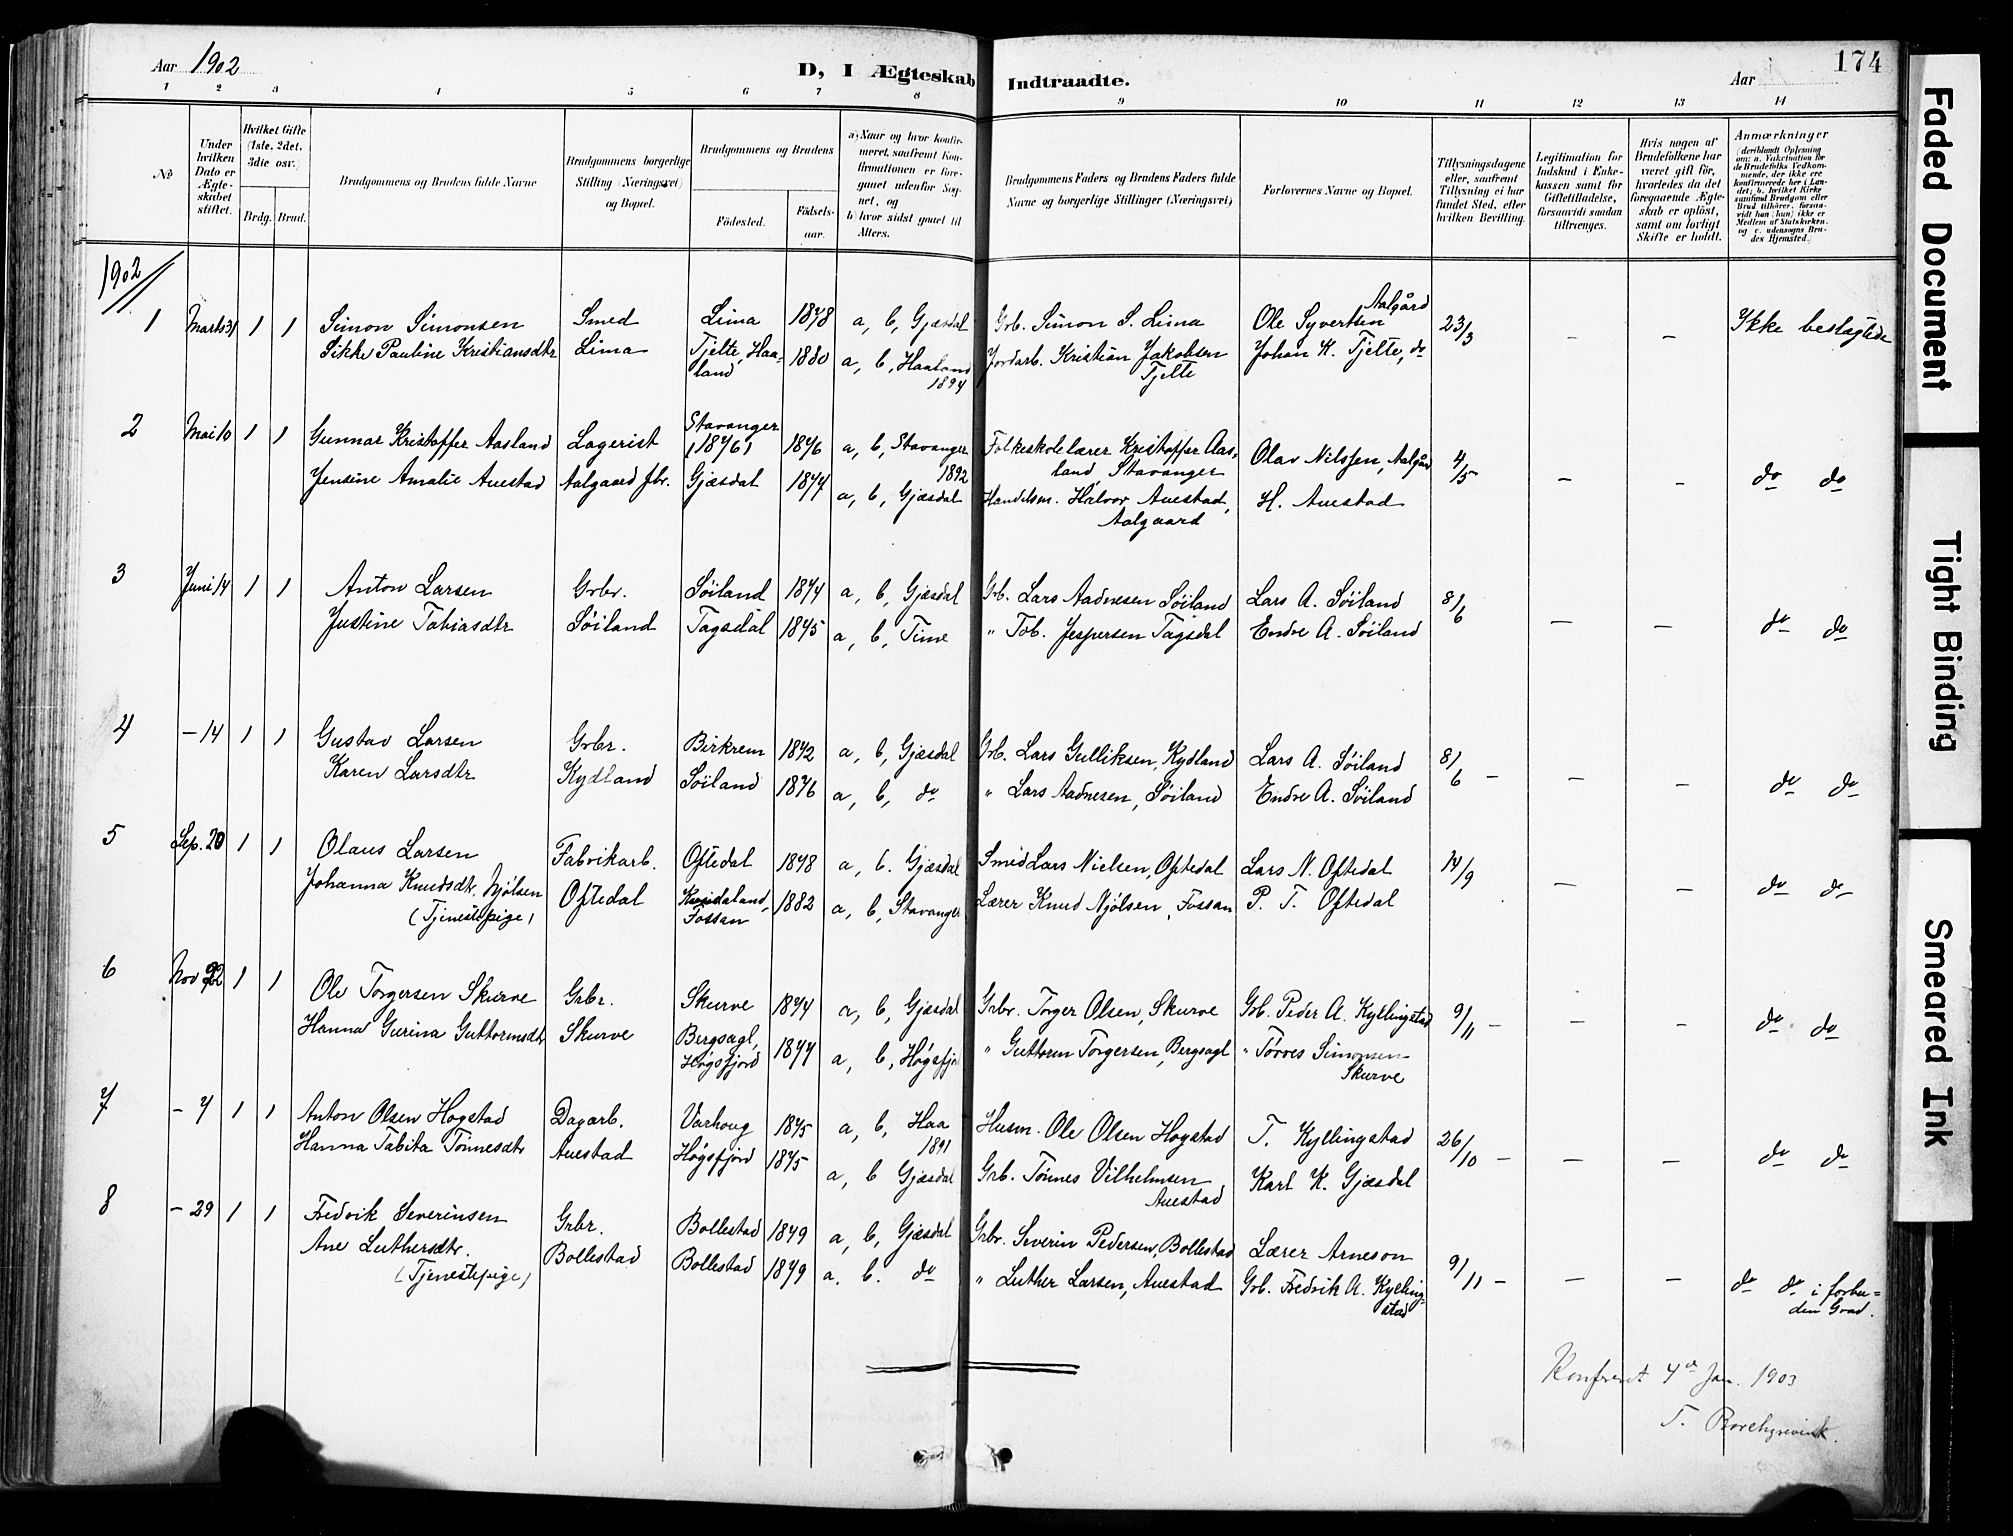 Aar 1902
D, I Ægteskab Indtraadte.
Aar
174
1 2 3 4 5 6 7 8 9 10 11 12 13 14
No
Under hvilken Dato er Ægteskabet stiftet.
Hvilket Gifte (1ste, 2det, 3die osv.)
Brdg. Brud.
Brudgommens og Brudens fulde Navne
Brudgommens borgerlige Stilling (Næringsvei) og Bopæl.
Brudgommens og Brudens
Fødested.
Fødselsaar.
a) Naar og hvor konfirmeret, saafremt Konfirmationen er foregaaet udenfor Sognet, og
b) hvor sidst gaaet til Alters.
Brudgommens Faders og Brudens Faders fulde Navne og borgerlige Stillinger (Næringsvei)
Forlovernes Navne og Bopæl.
Tillysningsdagene eller, saafremt Tillysning ei har fundet Sted, efter hvilken Bevilling.
Legitimation for Indskud i Enkekassen samt for Giftetilladelse, forsaavidt saadan tiltrænges.
Hvis nogen af Brudefolkene har været gift før, hvorledes da det foregaaende Ægteskab er opløst, samt om lovligt Skifte er holdt.
Anmærkninger
1902
1 Marts 31 1 1 Simon Simonsen Smed Lima 1878 a, b, Gjæsdal Grb. Simon S. Lima Ole Syvertsen Aalgård 23/3 - - Ikke beslægtede
Sikke Pauline Kristiansdtr Lima Tjelte, Haaland 1880 a, b, Haaland 1894 Jordarb. Kristian Jakobsen Tjelte Johan K. Tjelte, do
2 Mai 10 1 1 Gunnar Kristoffer Aasland Lagerist Stavanger (1876) 1876 a, b, Stavanger 1892 Folkeskolelærer Kristoffer Aasland, Stavanger Olav Nilssen, Aalgård 4/5 - - do do
Jensine Amalie Auestad Aalgaard fbr. Gjæsdal 1877 a, b, Gjæsdal Handelsm. Halvor Auestad, Aalgaard H. Auestad
3 Juni 14 1 1 Anton Larsen Grbr. Søiland 1874 a, b, Gjæsdal Grb. Lars Aadnesen Søiland Lars A. Søiland 8/6 - - do do
Justine Tobiasdtr Søiland Tagsdal 1875 a, b, Time " Tob. Jespersen Tagsdal Endre A. Søiland
4 - 14 1 1 Gustav Larsen Grbr. Birkrem 1872 a, b, Gjæsdal Grb. Lars Gulliksen, Kydland Lars A. Søiland 8/6 - - - do do
Karen Larsdtr Kydland Søiland 1876 a, b, do " Lars Aadnesen, Søiland Endre A. Søiland
5 Sep. 20 1 1 Olaus Larsen Fabrikarb. Oftedal 1878 a, b. Gjæsdal Smed Lars Nielsen, Oftedal Lars N. Oftedal 14/9 - - do do
Johanna Knudsdtr. Njølsen (Tjenestepige) Oftedal Fossan 1882 a, b, Stavanger Lærer Knud Njølsen, Fossan P. T. Oftedal
6 Nov 22 1 1 Ole Torgersen Skurve Grbr. Skurve 1874 a, b, Gjæsdal Grbr. Torger Olsen, Skurve Grb. Peder A. Kyllingstad 9/11 - - - do do
Hanna Gurina Guttormsdtr Skurve Bergsagl, Høgsfjord 1877 a, b, Høgsfj " Guttorm Torgersen, Bergsagl " Tørres Simonsen Skurve
7 - 7 1 1 Anton Olsen Hogstad Dagarb. Varhoug 1875 a, b, Haa 1891 Husm. Ole Olsen Hogstad T. Kyllingstad 26/10 - - - do do
Hanna Tabita Tønnesdtr Auestad Høgsfjord 1875 a, b Gjæsdal Grb. Tønnes Vilhelmsen Auestad Karl K. Gjæsdal
8 - 29 1 1 Fredrik Severinsen Grbr. Bollestad 1879 a, b, Gjæsdal Grbr. Severin Pedersen, Bollestad Lærer Arneson 9/11 - - - do do i forbuden Grad.
Ane Luthersdtr. (Tjenestepige) Bollestad Bollestad 1879 a. b. do " Luther Larsen, Auestad Grb. Fredrik A. Kyllingstad
Konfereret 7de Jan. 1903
T. Borchgrevink.
Faded Document
Tight Binding
Smeared Ink